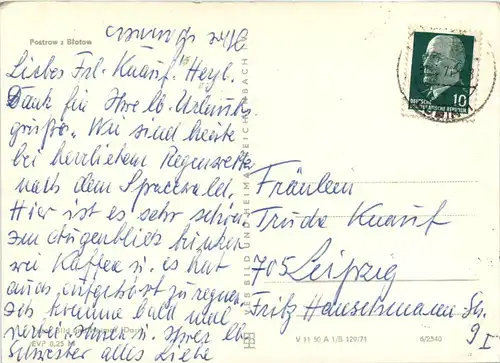 Postrow z Błotow
Liebes Frl. Knauf. Heyl.
Dank für Ihre lb. Urlaubs
grüße. Wir sind heute
bei herrlichem Regenwetter
nach dem Spreewald.
Hier ist es sehr schön
im Augenblick trinken
wir Kaffee u. es hat
auch aufgehört zu regnen.
Ich komme bald mal
u. Ihrer lb
Schwester alles Liebe
Ihre
VEB BILD UND HEIMAT REICHENBACH
(EVP 0,25 M
V 11 50 A 1/B 129/71
6/2540
10
Fräulein
Trude Knauf
705 Leipzig
Fritz Hanschmann Str.
9 I